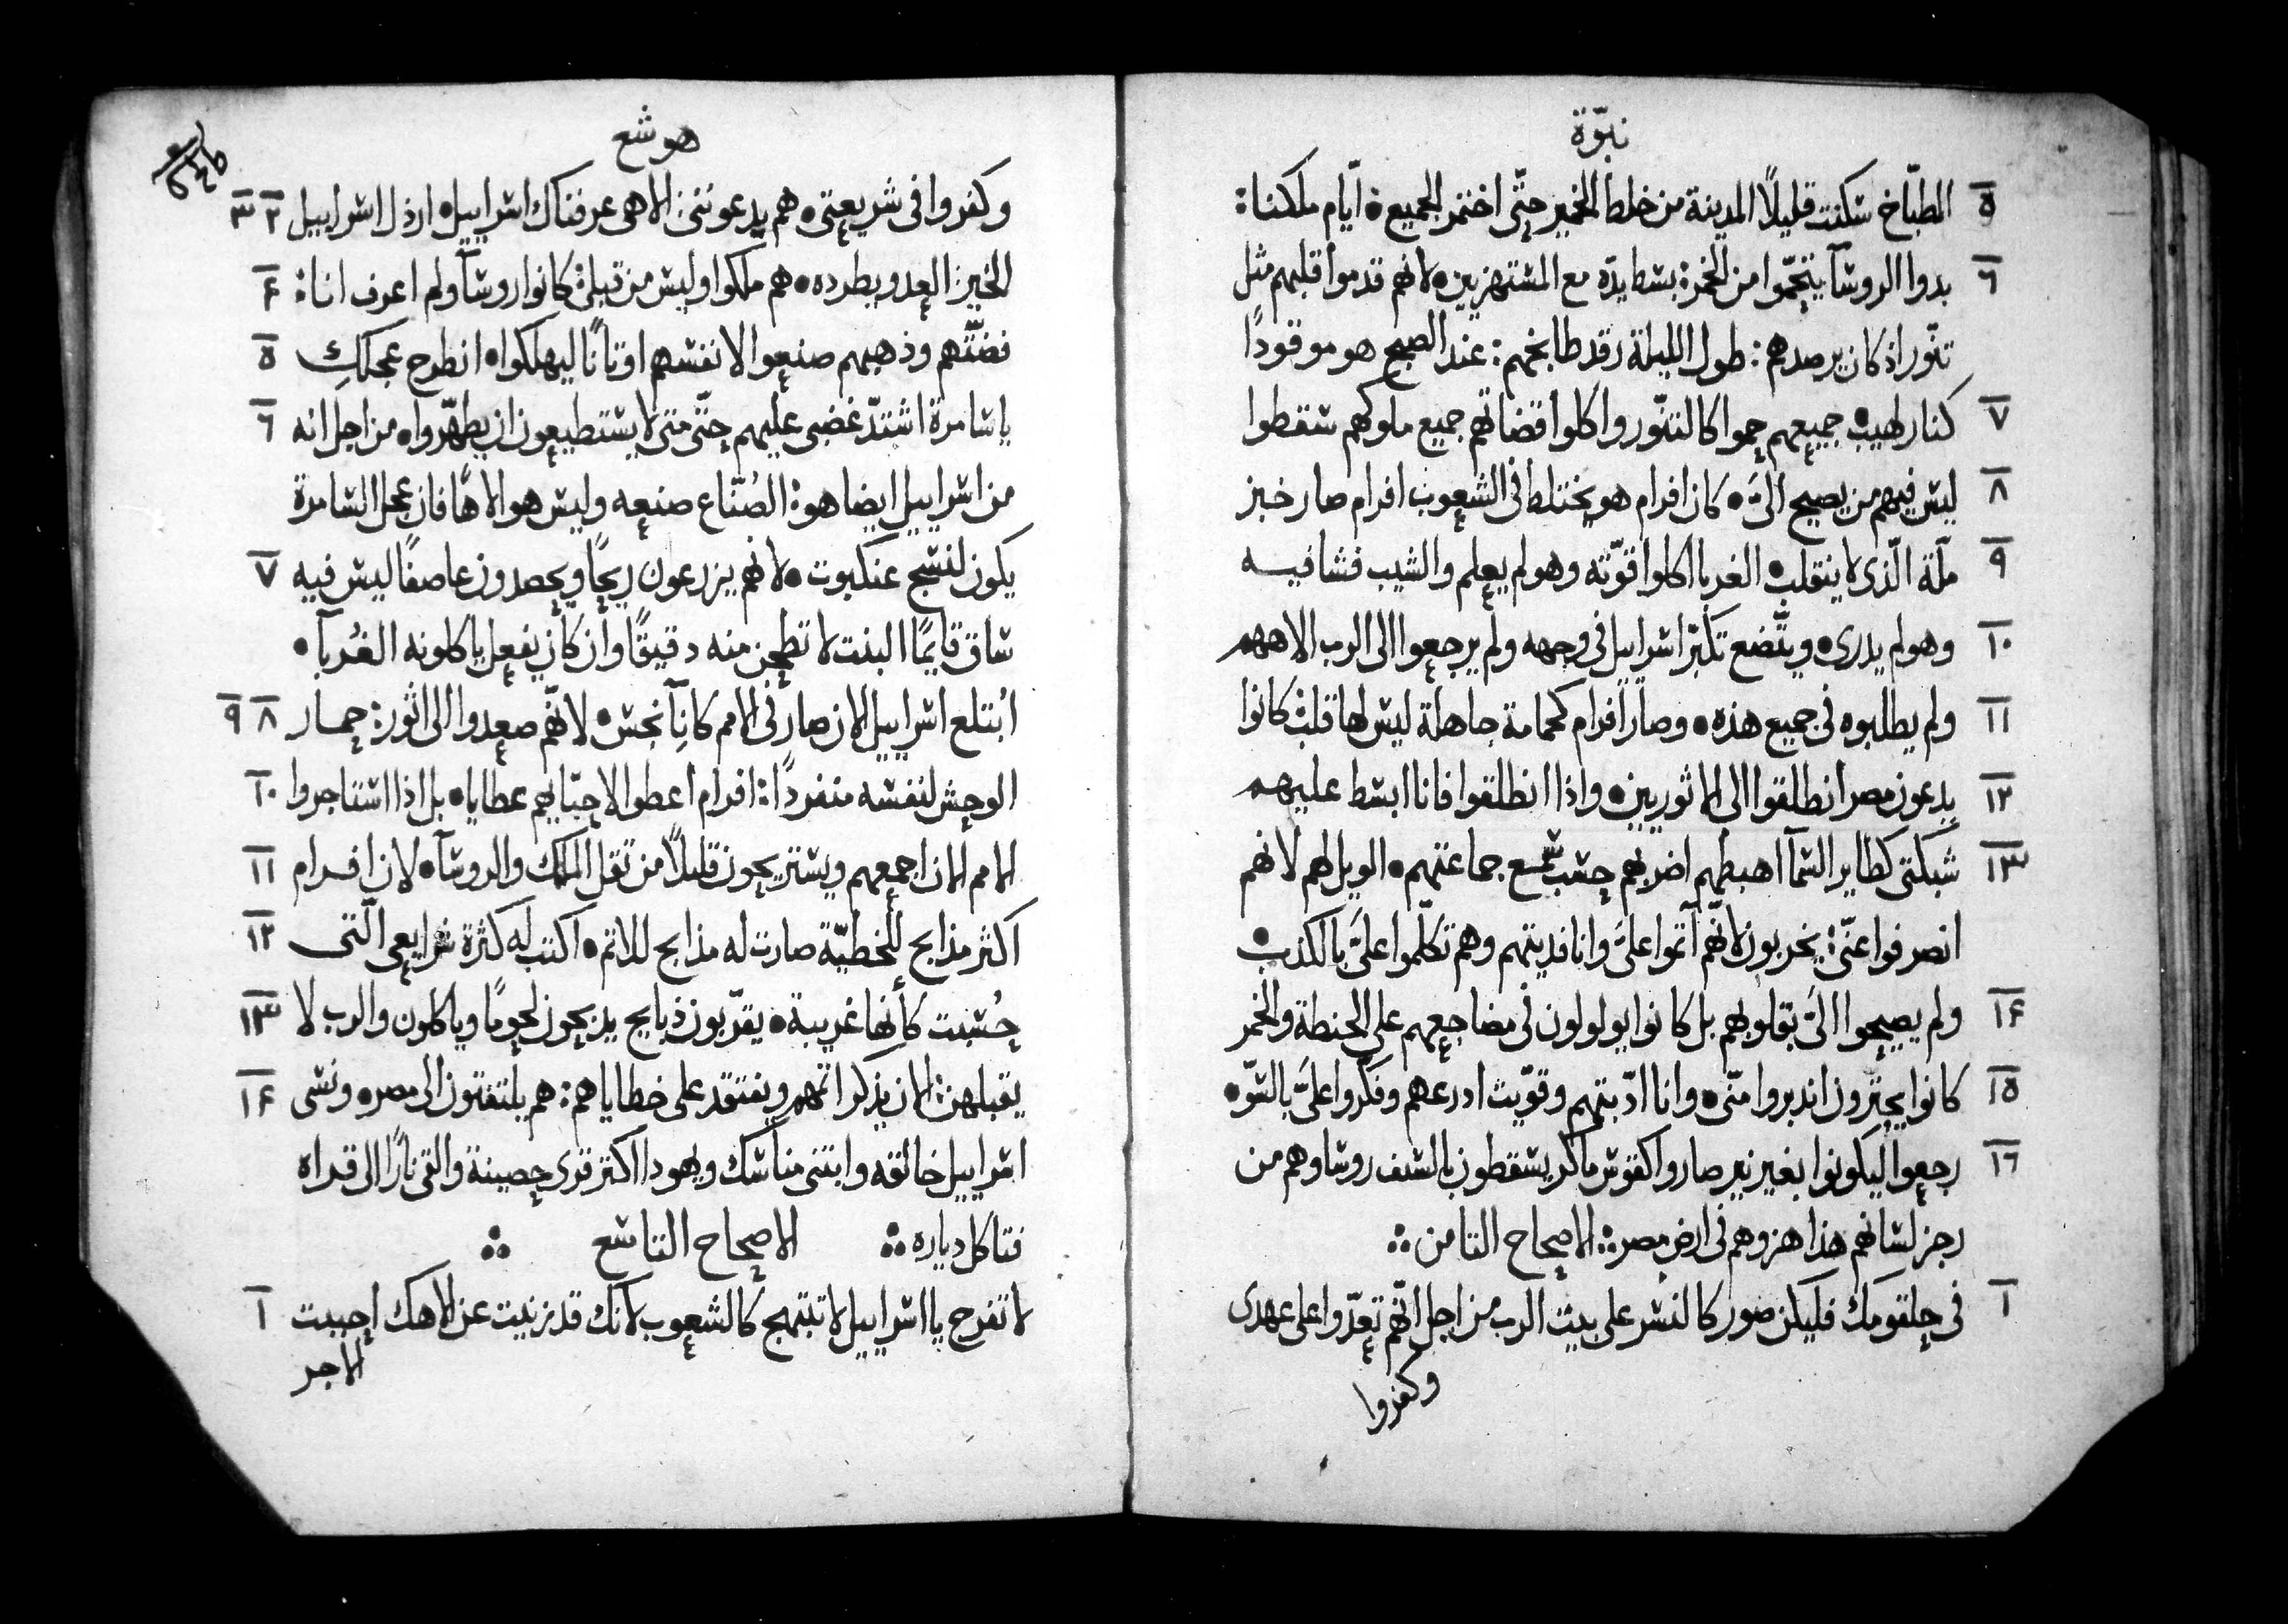 نبوّة
٥ المطبّاخ سكنت قليلاً المدينة من خلط الخمير حتّى اختمر الجميع ٭ ايّام ملكنا:
٦ بدوا الروسآ يتحمّوا من الخمر: بسط يدّه مع المستهزيين ٭ لانهم قدموا قلبهم مثل
تنّور اذ كان يرصدهم: طول الليلة رقد طابخهم: عند الصبح هو موقودًا
٧ كنار لهيب ٭ جميعهم حموا كالتنّور واكلوا قضاتهم جميع ملوكهم سقطوا
٨ ليس فيهم من يصيح الىّ ٭ كان افرام هو يختلط فى الشعوب افرام صار خبز
٩ ملّة الّذى لا ينقلب ٭ الغربا اكلوا قوّته وهو لم يعلم والشيب فشا فيه
١٠ وهو لم يدرى ٭ ويتّضع تكبّر اسراييل فى وجهه ولم يرجعوا الى الرب الاههم
١١ ولم يطلبوه فى جميع هذه ٭ وصار افرام كحمامة جاهلة ليس لها قلب كانوا
١٢ يدعون مصر انطلقوا الى الاثوريين ٭ واذا انطلقوا فانا ابسط عليهم
١٣ شبكتى كطاير السمآ اهبطهم اضربهم حسب سمع جماعتهم ٭ الويل لهم لانهم
انصرفوا عنّى: يخربون لانّهم آثموا علىَّ وانا فديتهم وهم تكلّموا علىَّ بالكذب ٭
١٤ ولم يصيحوا الىَّ بقلوبهم بل كانوا يولولون فى مضاجعهم على الحنطة والخمر
١٥ كانوا يجترون اندبروا منّى ٭ وانا ادّبتهم وقوّيت ادرعهم وفكّروا علىَّ بالسّو ٭
١٦ رجعوا ليكونوا بغير نير صاروا كقوس ماكر يسقطون بالسيف روساوهم من
رجز لسانهم هذا هزوهم فى ارض مصر ⁘ الاصحاح الثامن ⁘
١ فى حلقومك فليكن صور كالنسر على بيت الرب من اجل انّهم تعدّوا على عهدى
وكفروا
هوشع
وكفروا فى شريعتى ٭ هم يدعوننى: الاهى عرفناك اسراييل ٭ ارذل اسراييل ٢ ٣
الخير: العدو يطرده ٭ هم ملكوا وليس من قبلى: كانوا روسآ ولم اعرف انا: ٤
فضّتهم وذهبهم صنعوا لانفسهم اوثانًا ليهلكوا ٭ انطرح عجلكِ ٥
يا سامرة اشتدّ غضبى عليهم حتّى متى لا يستطيعون ان يطهّروا ٭ من اجل انه ٦
من اسراييل ايضا هو: الصُنّاع صنعه وليس هو الاهًا فان عجل السامرة
يكون لنسج عنكبوت ٭ لانهم يزرعون ريحًا ويحصدون عاصفًا ليس فيه ٧
ساق قايمًا النبت لا تطحن منه دقيقًا وان كان يفعل ياكلونه الغُربآ ٭
ابُتلع اسراييل الان صار فى الامم كانآ نجس ٭ لانّهم صعدوا الى اثور: حمار ٨ ٩
الوحش لنفسه منفردًا: افرام اعطوا لاحبّايهم عطايا ٭ بل اذا استاجروا ١٠
الامم الان اجمعهم ويستريحون قليلاً من ثقل الملك والروسآ ٭ لان افرام ١١
اكثر مذابح للخطيّة صارت له مذابح للاثم ٭ اكتب له كثرة شرايعى الّتى ١٢
حُسبت كأنها غريبة ٭ يقرّبون ذبايح يذبحون لحومًا وياكلون والرب لا ١٣
يقبلهن: الان يذكر اثمهم ويفتقد على خطاياهم: هم يلتفتون الى مصر ٭ ونسى ١٤
اسراييل خالقه وابتنى مناسك ويهودا اكثر قرى حصينة والقى نارًا الى قراه
فتاكل دياره ⁘ الاصحاح التاسع ⁘
لا تفرح يا اسراييل لا تبتهج كالشعوب لانك قد زنيت عن الاهك احببت ١
الاجر